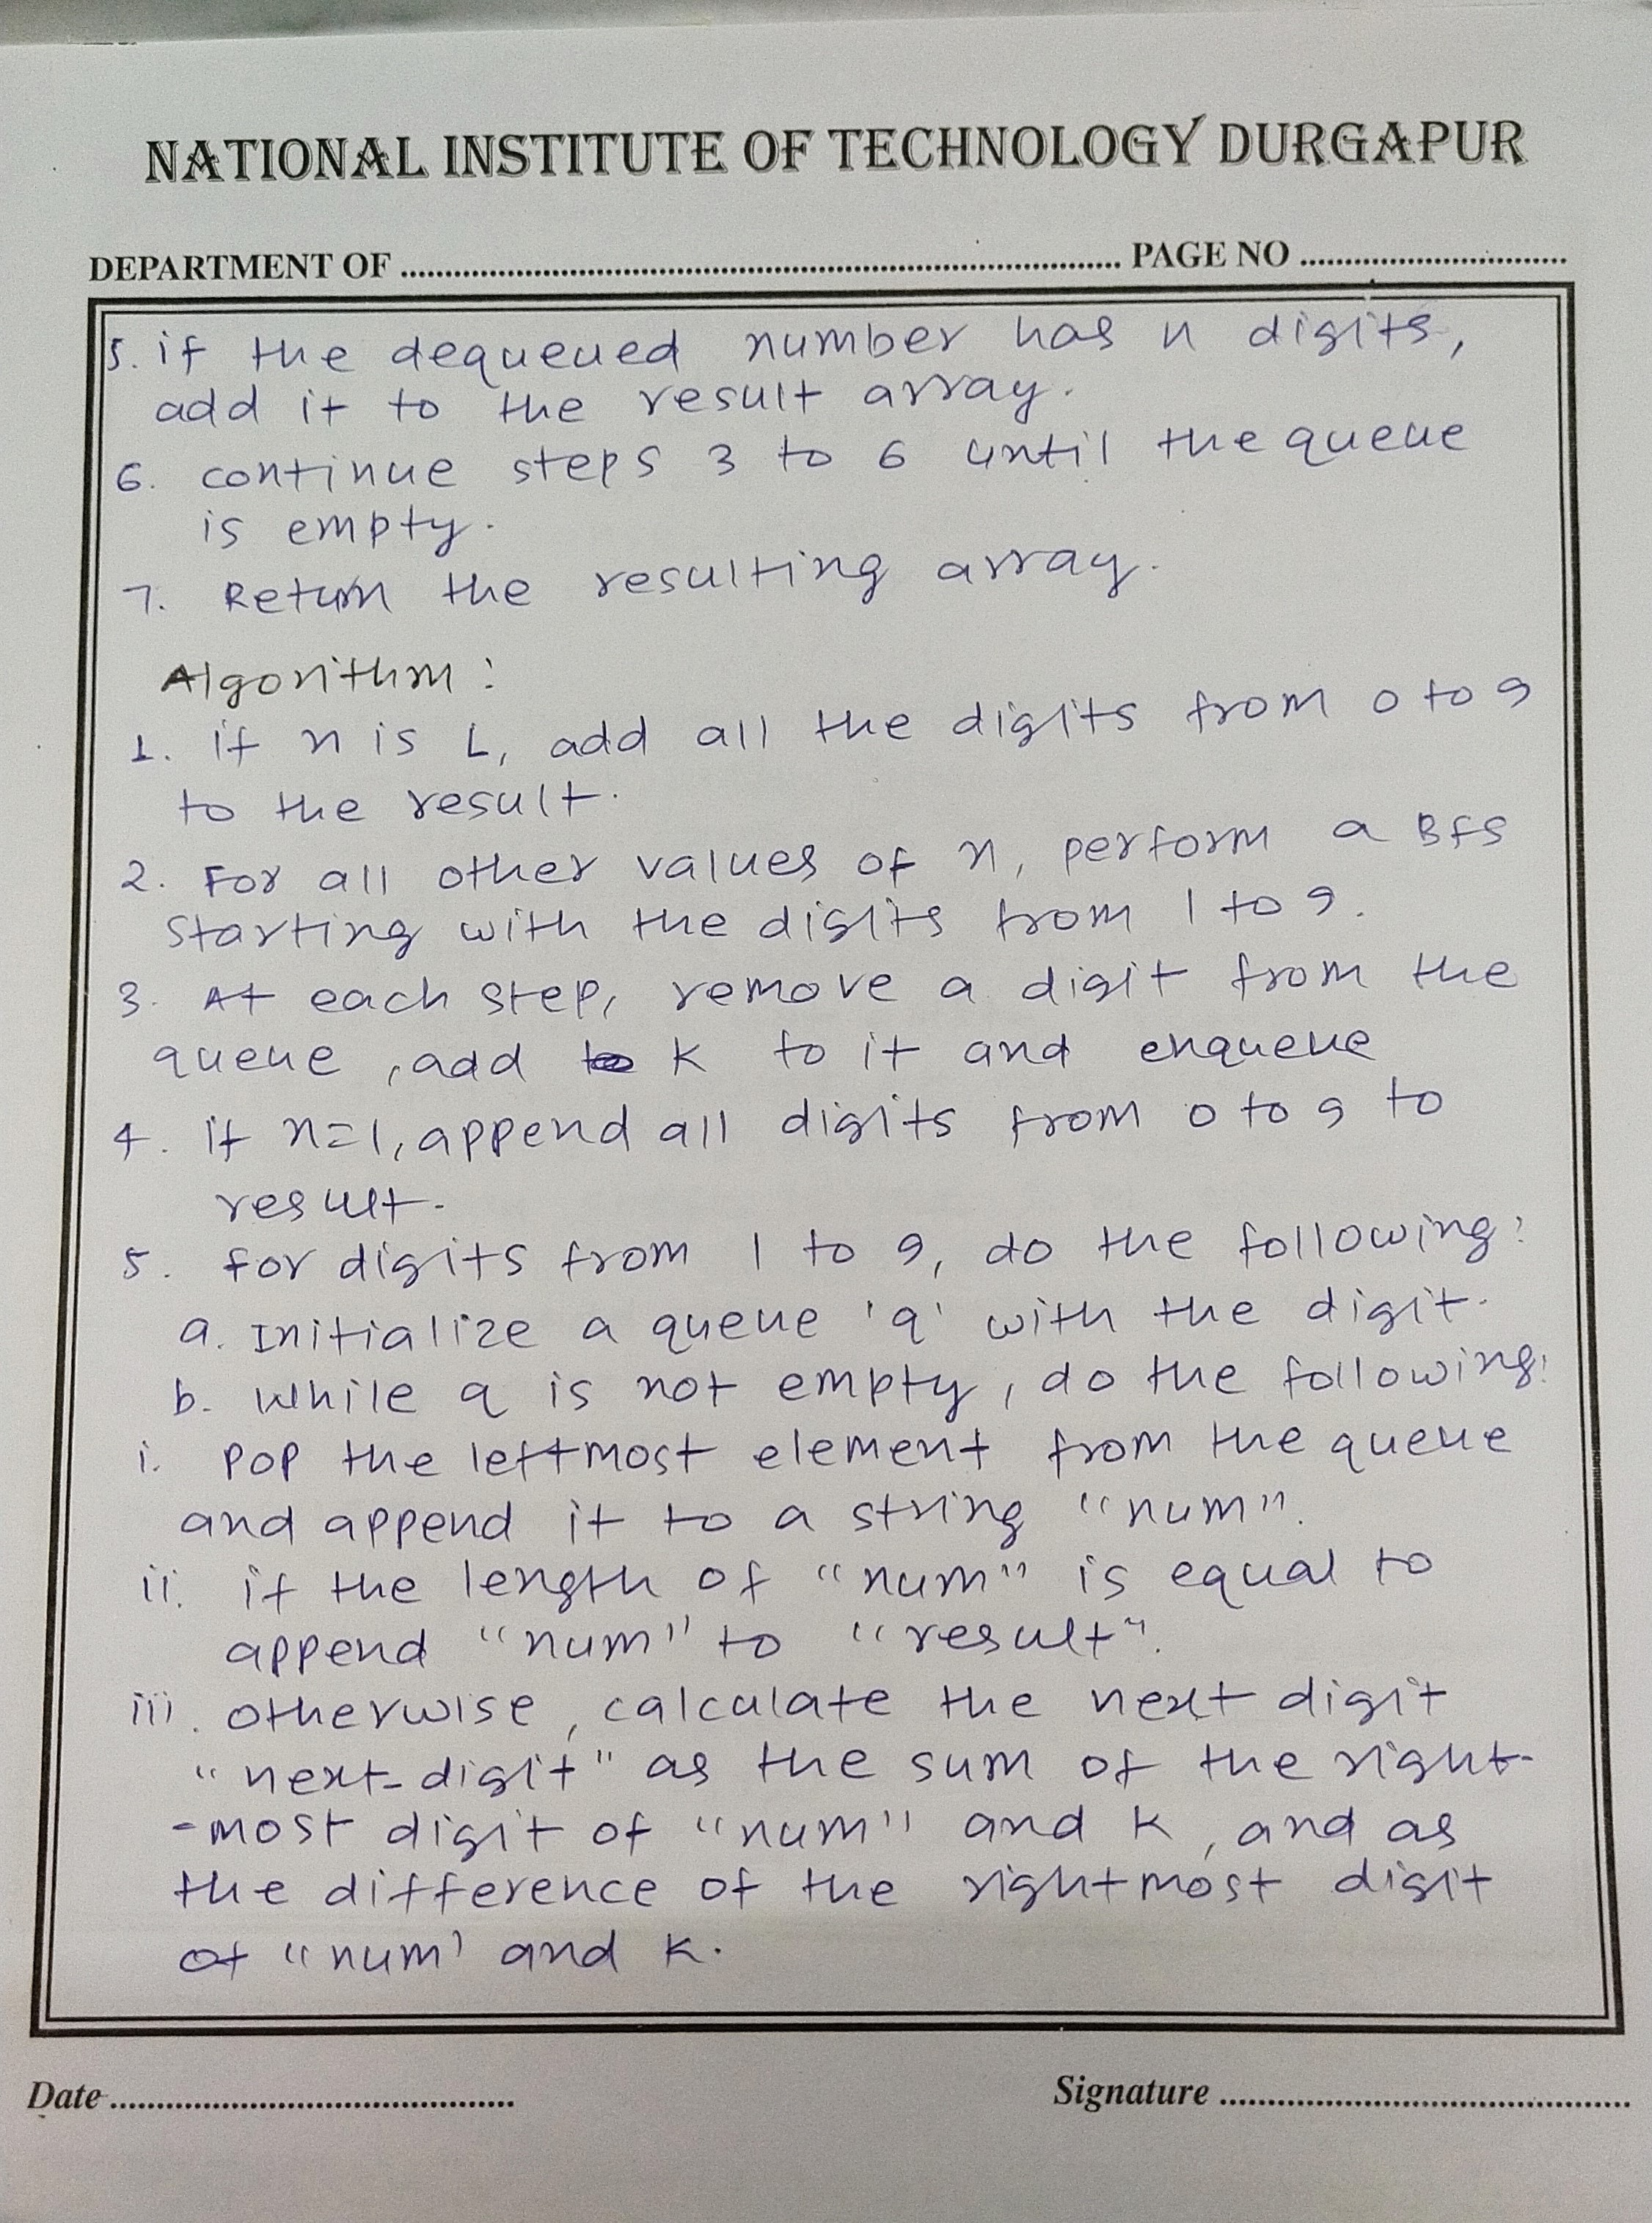 NATIONAL INSTITUTE OF TECHNOLOGY DURGAPUR
DEPARTMENT OF ........................ PAGE NO ............
5. if the dequeued number has n digits,
add it to the result array.
6. continue steps 3 to 6 until the queue
is empty.
7. Return the resulting array.
Algorithm:
1. if n is 1, add all the digits from 0 to 9
to the result.
2. For all other values of n, perform a BFS
starting with the digits from 1 to 9.
3. At each step, remove a digit from the
queue, add K to it and enqueue
4. if n=1, append all digits from 0 to 9 to
result.
5. for digits from 1 to 9, do the following:
a. Initialize a queue 'q' with the digit.
b. While q is not empty, do the following:
i. POP the leftmost element from the queue
and append it to a string "num".
ii. if the length of "num" is equal to
append "num" to "result".
iii. otherwise, calculate the next digit
"next-digit" as the sum of the right-
-most digit of "num" and K, and as
the difference of the rightmost digit
of "num' and K.
Date ........................ Signature ........................